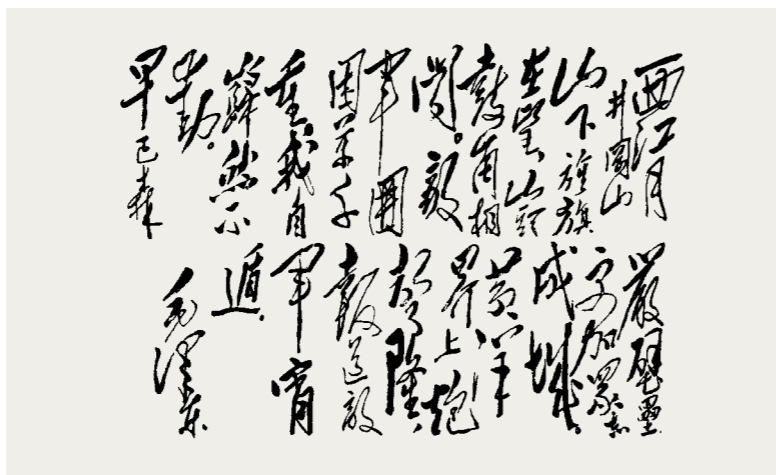 西江月
井岡山
山下旌旗
在望，山頭
鼓角相
聞。敵
軍圍
困萬千
重，我自
巋然不
動。
早已森
嚴壁壘，
更加眾志
成城。
黃洋
界上炮
聲隆，
報道敵
軍宵
遁。
毛澤東